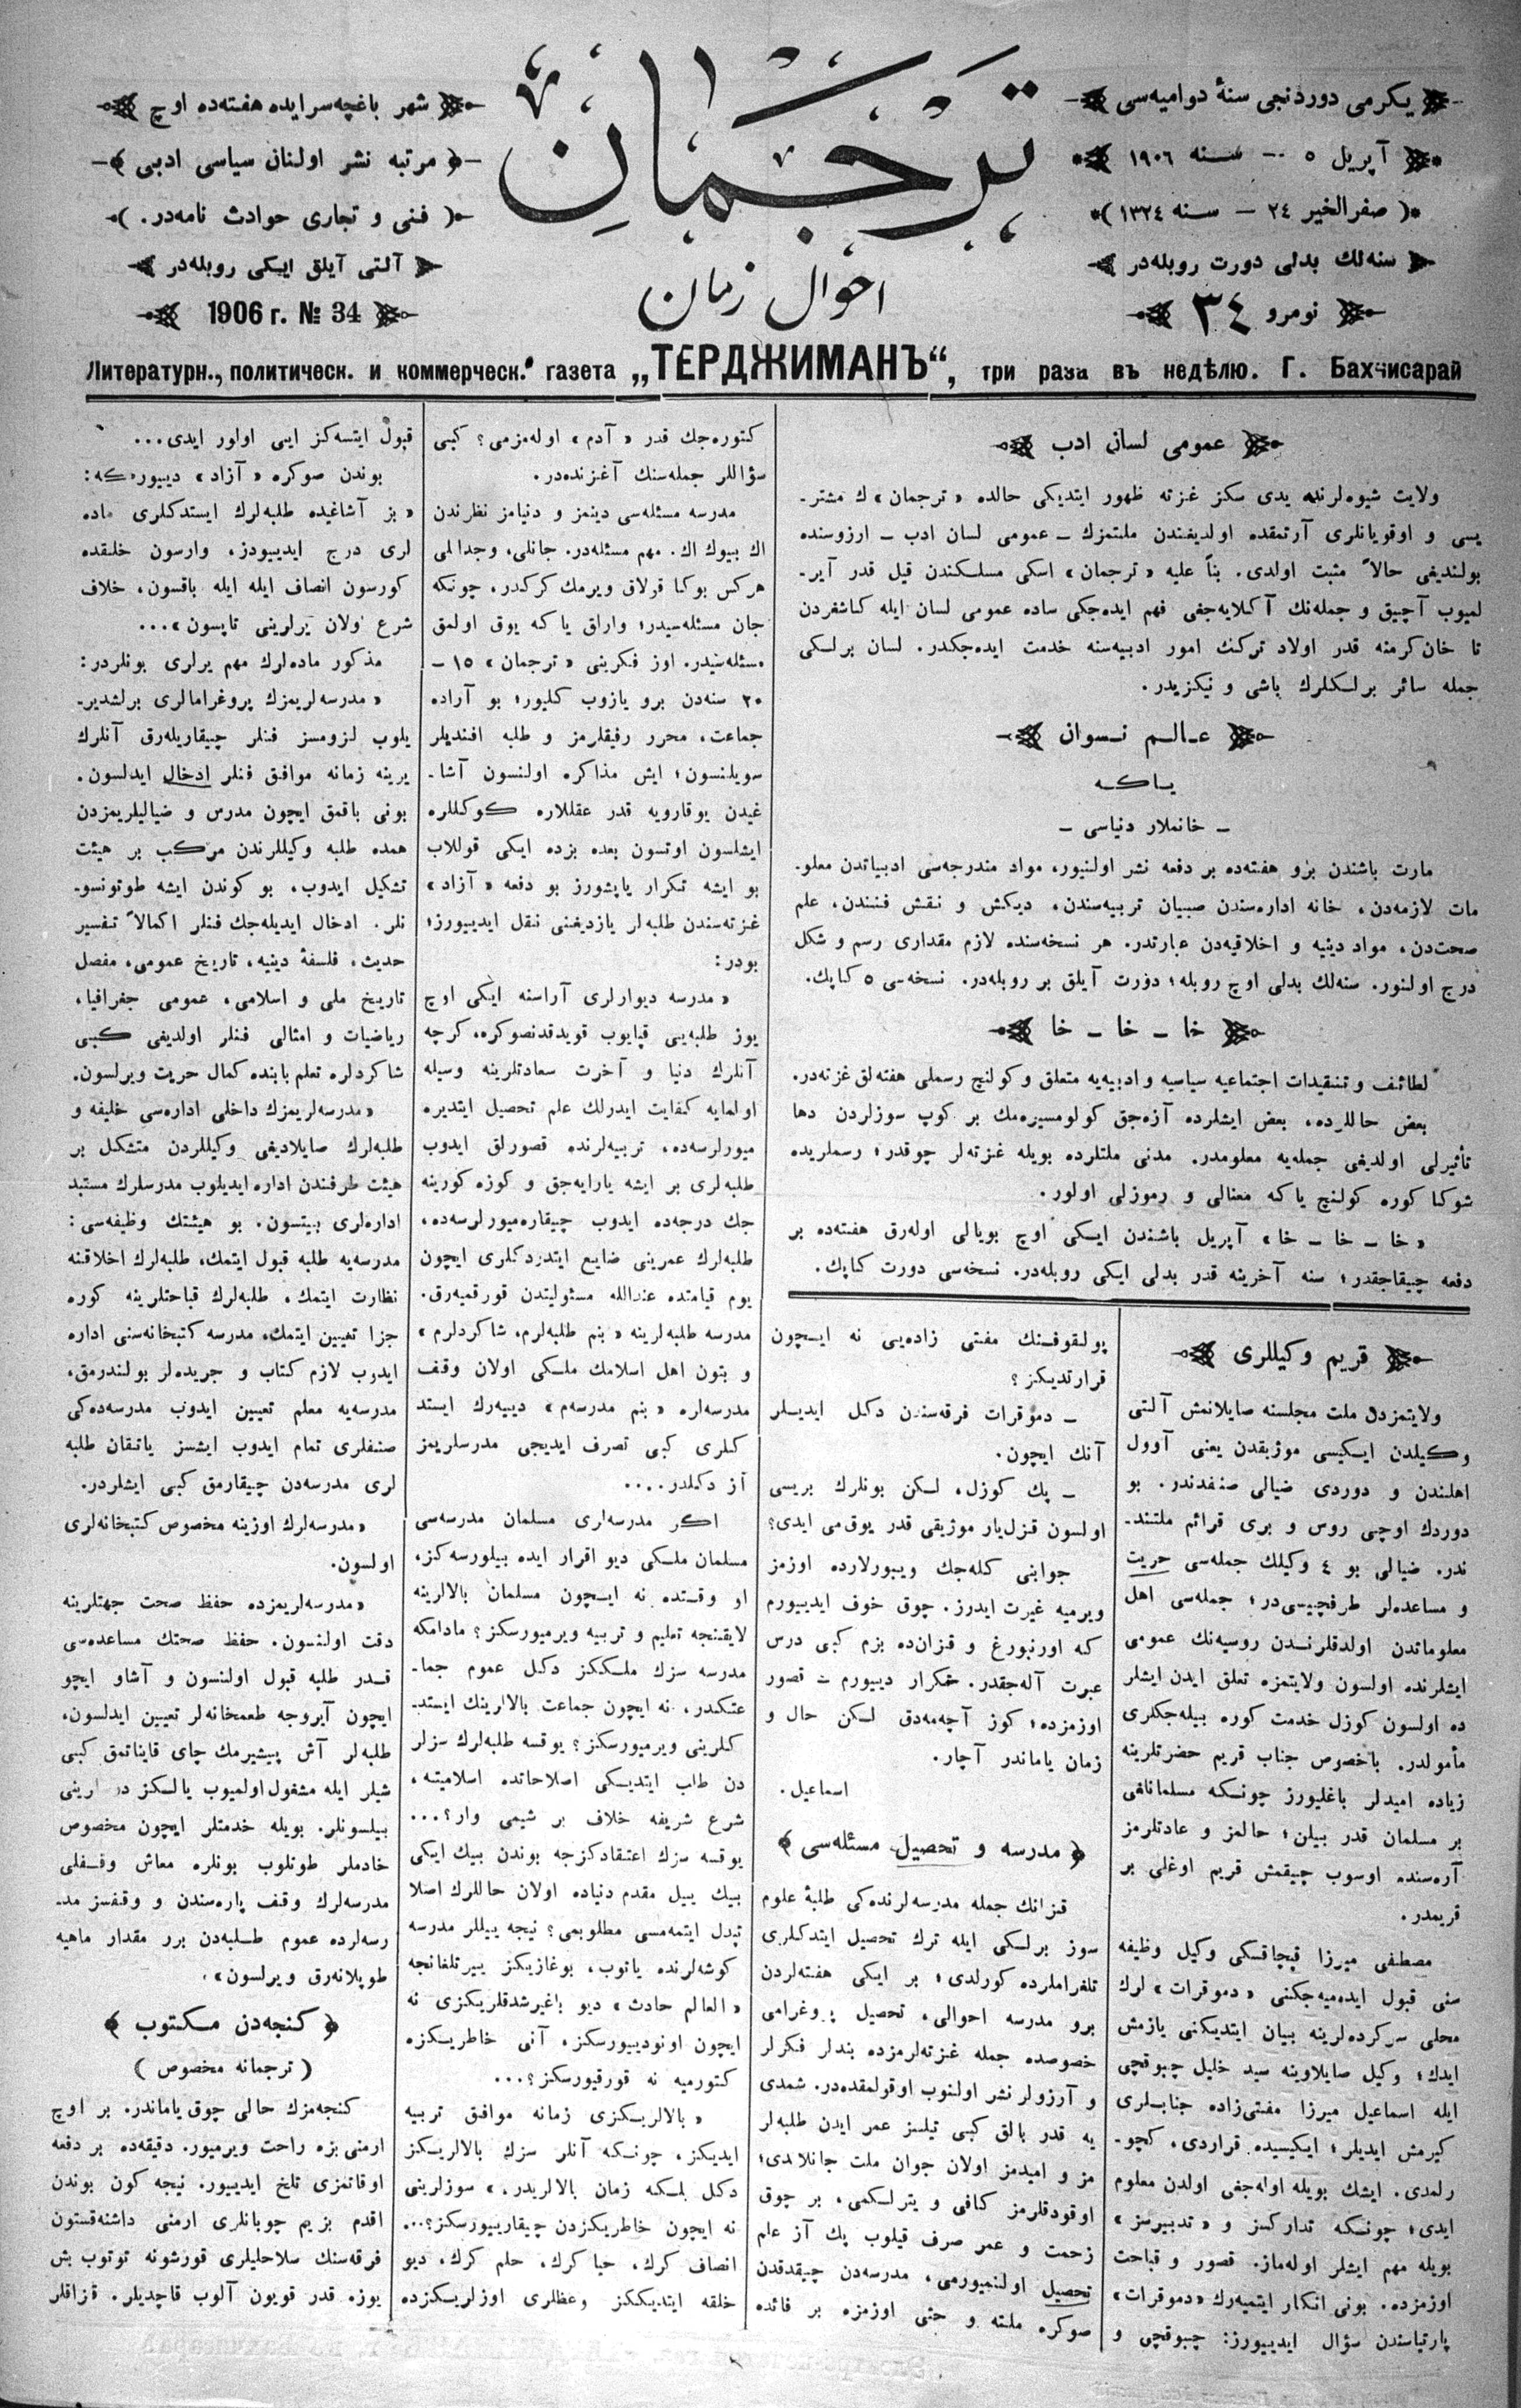 يكرمى دوردنجى سنۀ دواميه‌سى
آپريل ٥ — سنه ١٩٠٦
(صفرالخير ٢٤ — سنه ١٣٢٤)
سنه‌لك بدلى دورت روبله‌در
نومرو ٣٤
ترجمان
احوال زمان
شهر باغچه‌سرايده هفته‌ده اوچ
مرتبه نشر اولنان سياسى ادبى
(فنى و تجارى حوادث نامه‌در.)
آلتى آيلق ايكى روبله‌در
1906 г. № 34
Литературн., политическ. и коммерческ. газета „ТЕРДЖИМАНЪ“, три раза въ недѣлю. Г. Бахчисарай
عمومى لسان ادب
ولايت شيوه‌لرنده يدى سكز غزته ظهور ايتديكى حالده «ترجمان»ك مشتر-
يسى و اوقويانلرى آرتمقده اولديغندن ملتمزك — عمومى لسان ادب — ارزوسنده
بولنديغى حالاً مثبت اولدى. بناً عليه «ترجمان» اسكى مسلكندن قيل قدر آير-
لميوب آچيق و جمله‌نك آكلايه‌جغى فهم ايده‌جكى ساده عمومى لسان ايله كاشغردن
تا خان‌كرمنه قدر اولاد تركك امور ادبيه‌سنه خدمت ايده‌جكدر. لسان برلكى
جمله سائر برلكلرك باشى و نيكزيدر.
عالم نسوان
ياكه
— خانملار دنياسى —
مارت باشندن برو هفته‌ده بر دفعه نشر اولنيور، مواد مندرجه‌سى ادبياتدن معلو-
مات لازمه‌دن، خانه اداره‌سندن صبيان تربيه‌سندن، ديكش و نقش فنندن، علم
صحت‌دن، مواد دينيه و اخلاقيه‌دن عبارتدر. هر نسخه‌سنده لازم مقدارى رسم و شكل
درج اولنور. سنه‌لك بدلى اوچ روبله؛ دورت آيلق بر روبله‌در. نسخه‌سى ٥ كاپك.
خا — خا — خا
لطائف و تنقيدات اجتماعيه سياسيه و ادبيه‌يه متعلق و كولنچ رسملى هفته‌لق غزته‌در.
بعض حاللرده، بعض ايشلرده آزه‌جق كولومسيره‌مك بر كوپ سوزلردن دها
تأثيرلى اولديغى جمله‌يه معلومدر. مدنى ملتلرده بويله غزته‌لر چوقدر؛ رسملريده
شوكا كوره كولنچ ياكه معنالى و رموزلى اولور.
«خا — خا — خا» آپريل باشندن ايكى اوچ بويالى اوله‌رق هفته‌ده بر
دفعه چيقاجقدر؛ سنه آخرينه قدر بدلى ايكى روبله‌در. نسخه‌سى دورت كاپك.
قريم وكيللرى
ولايتمزدن ملت مجلسنه صايلانمش آلتى
وكيلدن ايكيسى موژيقدن يعنى آوول
اهلندن و دوردى ضيالى صنفدندر. بو
دوردك اوچى روس و برى قرائم ملتند-
ندر. ضيالى بو ٤ وكيلك جمله‌سى حريت
و مساعده‌لر طرفچيسى‌در؛ جمله‌سى اهل
معلوماتدن اولدقلرندن روسيه‌نك عمومى
ايشلرنده اولسون ولايتمزه تعلق ايدن ايشلر
ده اولسون كوزل خدمت كوره بيله‌جكلرى
مأمولدر. باخصوص جناب قريم حضرتلرينه
زياده اميدلر باغليورز چونكه مسلمانلغى
بر مسلمان قدر بيلن؛ حالمز و عادتلرمز
آره‌سنده اوسوب چيقمش قريم اوغلى بر
قريمدر.
مصطفى ميرزا قپچاقسكى وكيل وظيفه
سنى قبول ايده‌ميه‌جكنى «دموقرات» لرك
محلى سركرده‌لرينه بيان ايتديكنى يازمش
ايدك؛ وكيل صايلاوينه سيد خليل چبوقچى
ايله اسماعيل ميرزا مفتى‌زاده جنابلرى
كيرمش ايديلر؛ ايكيسيده قراردى، كچو-
رلمدى. ايشك بويله اوله‌جغى اولدن معلوم
ايدى؛ چونكه تداركسز و «تدبيرسز»
بويله مهم ايشلر اوله‌ماز. قصور و قباحت
اوزمزده. بونى انكار ايتميه‌رك «دموقرات»
پارتياسندن سؤال ايدييورز: چبوقچى و
پولقوفنك مفتى زاده‌يى نه ايچون
قرارتديكز؟
— دموقرات فرقه‌سندن دكل ايديلر
آنك ايچون.
— پك كوزل، لكن بونلرك بريسى
اولسون قزل‌يار موژيقى قدر يوق‌مى ايدى؟
جوابنى كله‌جك ويبورلارده اوزمز
ويرميه غيرت ايدرز. چوق خوف ايدييورم
كه اورنبورغ و قزان‌ده بزم كبى درس
عبرت آله‌جقدر. تكرار دييورم — قصور
اوزمزده؛ كوز آچه‌مه‌دق لكن حال و
زمان ياماندر آچار.
اسماعيل.
﴿مدرسه و تحصيل مسئله‌سى﴾
قزانك جمله مدرسه‌لرنده‌كى طلبۀ علوم
سوز برلكى ايله ترك تحصيل ايتدكلرى
تلغراملرده كورلدى؛ بر ايكى هفته‌لردن
برو مدرسه احوالى، تحصيل پروغرامى
خصوصده جمله غزته‌لرمزده بندلر فكرلر
و آرزولر نشر اولنوب اوقولمقده‌در. شمدى
يه قدر بالق كبى تيلسز عمر ايدن طلبه‌لر
مز و اميدمز اولان جوان ملت جانلادى؛
اوقودقلرمز كافى و يترلكمى، بر چوق
زحمت و عمر صرف قيلوب پك آز علم
تحصيل اولنميورمى، مدرسه‌دن چيقدقدن
صوكره ملته و حتى اوزمزه بر فائده
كتوره‌جك قدر «آدم» اوله‌مزمى؟ كبى
سؤاللر جمله‌سنك آغزنده‌در.
مدرسه مسئله‌سى دينمز و دنيامز نظرندن
اك بيوك اك. مهم مسئله‌در. جانلى، وجدالى
هركس بوكا قولاق ويرمك كركدر، چونكه
جان مسئله‌سيدر؛ واراق ياكه يوق اولمق
مسئله‌سيدر. اوز فكرينى «ترجمان» ١٥ —
٢٠ سنه‌دن برو يازوب كليور؛ بو آراده
جماعت، محرر رفيقلرمز و طلبه افنديلر
سويلنسون؛ ايش مذاكره اولنسون آشا-
غيدن يوقارويه قدر عقللاره كوكللره
ايشلسون اوتسون بعده بزده ايكى قوللاب
بو ايشه تكرار ياپشورز بو دفعه «آزاد»
غزته‌سندن طلبه‌لر يازديغنى نقل ايدييورز؛
بودر:
«مدرسه ديوارلرى آراسنه ايكى اوچ
يوز طلبه‌يى قپايوب قويدقدنصوكره، كرچه
آنلرك دنيا و آخرت سعادتلرينه وسيله
اولمايه كفايت ايدرلك علم تحصيل ايتديره
ميورلرسه‌ده، تربيه‌لرنده قصورلق ايدوب
طلبه‌لرى بر ايشه يارايه‌جق و كوزه كورينه
جك درجه‌ده ايدوب چيقاره‌ميورلرسه‌ده،
طلبه‌لرك عمرينى ضايع ايتدردكلرى ايچون
يوم قيامتده عندالله مسئوليتدن قورقميه‌رق.
مدرسه طلبه‌لرينه «بنم طلبه‌لرم، شاكردلرم»
و بتون اهل اسلامك ملكى اولان وقف
مدرسه‌لره «بنم مدرسه‌م» دييه‌رك ايستد
كلرى كبى تصرف ايديجى مدرسلريمز
آز دكلدر....
اكر مدرسه‌لرى مسلمان مدرسه‌سى
مسلمان ملكى ديو اقرار ايده بيلورسه‌كز،
او وقتده نه ايچون مسلمان بالالرينه
لايقنجه تعليم و تربيه ويرميورسكز؟ مادامكه
مدرسه سزك ملككز دكل عموم جما-
عتكدر، نه ايچون جماعت بالالرينك ايستد-
كلرينى ويرميورسكز؟ يوقسه طلبه‌لرك سزلر
دن طلب ايتديكى اصلاحاتده اسلاميته،
شرع شريفه خلاف بر شيمى وار؟...
يوقسه سزك اعتقادكزجه بوندن بيك ايكى
بيك ييل مقدم دنياده اولان حاللرك اصلا
تبدل ايتمه‌مسى مطلوبمى؟ نيجه ييللر مدرسه
كوشه‌لرنده ياتوب، بوغازيكز ييرتلغانجه
«العالم حادث» ديو باغيرشدقلريكزى نه
ايچون اونودييورسكز، آنى خاطريكزه
كتورميه نه قورقيورسكز؟...
«بالالريكزى زمانه موافق تربيه
ايديكز، چونكه آنلر سزك بالالريكز
دكل بلكه زمان بالالريدر،» سوزلرينى
نه ايچون خاطريكزدن چيقارييورسكز؟...
انصاف كرك، حيا كرك، حلم كرك، ديو
خلقه ايتديككز وعظلرى اوزلريكزده
قبول ايتسه‌كز ايى اولور ايدى...
بوندن صوكره «آزاد» دييوركه:
«بز آشاغيده طلبه‌لرك ايستدكلرى ماده
لرى درج ايدييودز، وارسون خلقده
كورسون انصاف ايله ايله باقسون، خلاف
شرع اولان يرلرينى تاپسون»...
مذكور ماده‌لرك مهم يرلرى بونلردر:
«مدرسه‌لريمزك پروغرامالرى برلشدير-
يلوب لزومسز فنلر چيقاريله‌رق آنلرك
يرينه زمانه موافق فنلر ادخال ايدلسون.
بونى باقمق ايچون مدرس و ضياليلريمزدن
همده طلبه وكيللرندن مركب بر هيئت
تشكيل ايدوب، بو كوندن ايشه طوتونسو-
نلر. ادخال ايديله‌جك فنلر اكمالاً تفسير
حديث، فلسفۀ دينيه، تاريخ عمومى، مفصل
تاريخ ملى و اسلامى، عمومى جغرافيا،
رياضيات و امثالى فنلر اولديغى كبى
شاكردلره تعلم بابنده كمال حريت ويرلسون.
«مدرسه‌لريمزك داخلى اداره‌سى خليفه و
طلبه‌لرك صايلاديغى وكيللردن متشكل بر
هيئت طرفندن اداره ايديلوب مدرسلرك مستبد
اداره‌لرى بيتسون. بو هيئتك وظيفه‌سى:
مدرسه‌يه طلبه قبول ايتمك، طلبه‌لرك اخلاقنه
نظارت ايتمك، طلبه‌لرك قباحتلرينه كوره
جزا تعيين ايتمك، مدرسه كتبخانه‌سنى اداره
ايدرب لازم كتاب و جريده‌لر بولندرمق،
مدرسه‌يه معلم تعيين ايدوب مدرسه‌ده‌كى
صنفلرى تمام ايدوب ايشسز ياتقان طلبه
لرى مدرسه‌دن چيقارمق كبى ايشلردر.
«مدرسه‌لرك اوزينه مخصوص كتبخانه‌لرى
اولسون.
«مدرسه‌لريمزده حفظ صحت جهتلرينه
دقت اولنسون. حفظ صحتك مساعده‌سى
قدر طلبه قبول اولنسون و آشاو ايچو
ايچون آيروجه طعمخانه‌لر تعيين ايدلسون،
طلبه‌لر آش پيشيرمك چاى قايناتمق كبى
شيلر ايله مشغول اولميوب يالكز درسلرينى
بيلسونلر. بويله خدمتلر ايچون مخصوص
خادملر طوتلوب بونلره معاش وقفلى
مدرسه‌لرك وقف پاره‌سندن و وقفسز مد-
رسه‌لرده عموم طلبه‌دن برر مقدار ماهيه
طوپلانه‌رق ويرلسون».
﴿كنجه‌دن مكتوب﴾
(ترجمانه مخصوص)
كنجه‌مزك حالى چوق ياماندر. بر اوچ
ارمنى بزه راحت ويرميور. دقيقه‌ده بر دفعه
اوقاتمزى تلخ ايدييور. نيجه كون بوندن
اقدم بزيم چوبانلرى ارمنى داشنه‌قستون
فرقه‌سنك سلاحليلرى قورشونه توتوب بش
يوزه قدر قويون آلوب قاچديلر. قزاقلر